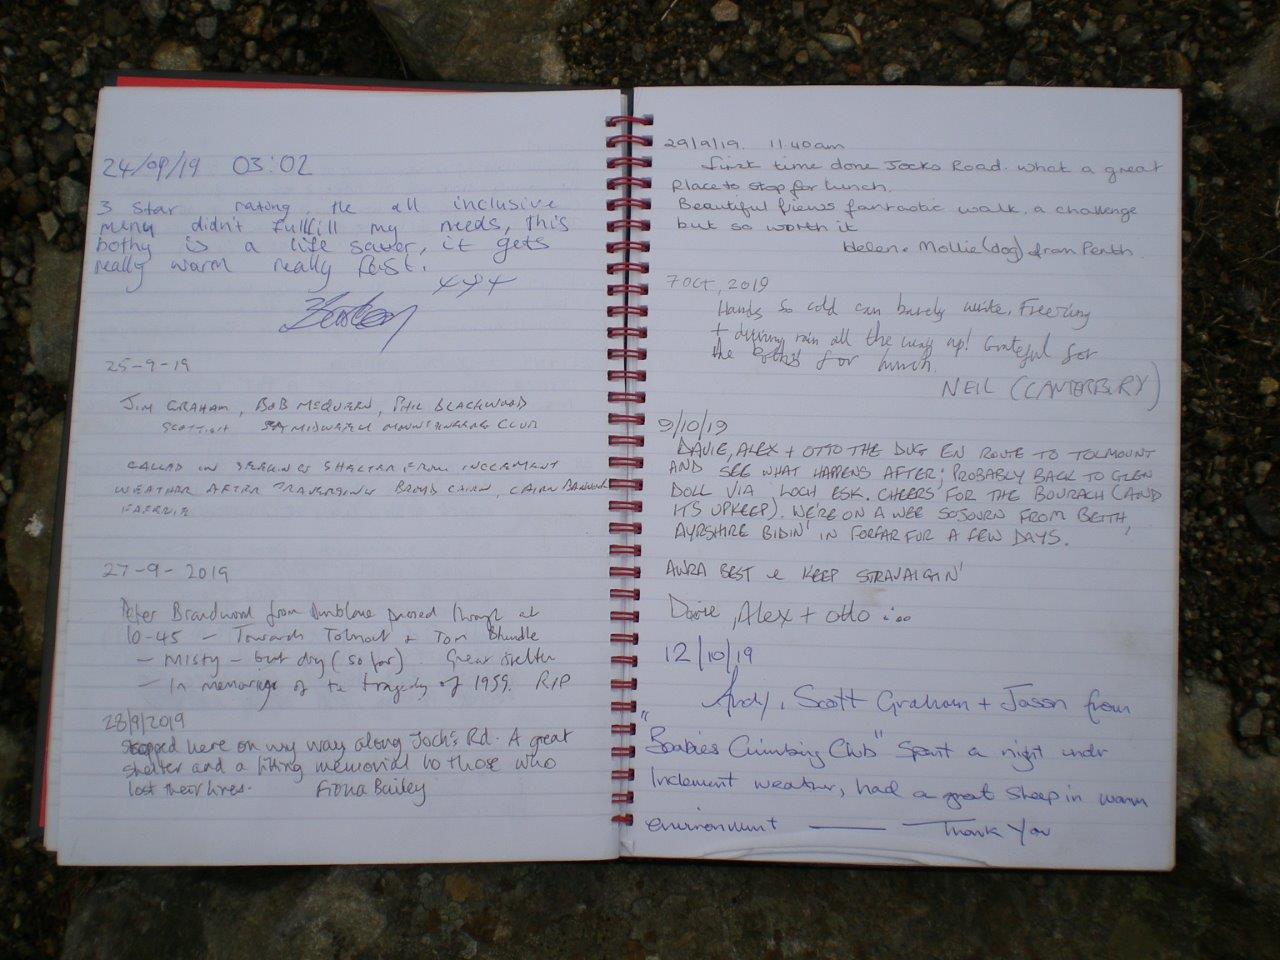 24/09/19 03:02
3 star rating, the all inclusive
menu didn't fullfill my needs, this
bothy is a life saver, it gets
really warm really fast.
25-9-19
JIM GRAHAM, BOB MCQUEEN, PHIL BLACKWOOD
SCOTTISH MOUNTAINEERING CLUB
CALLED IN SEEKING SHELTER FROM INCLEMENT
WEATHER AFTER TRAVERSING BROAD CAIRN, CAIRN BANNOCH
27-9-2019
Peter Broadwood from Dunblane passed through at
10-45 - Towards Tolmount + Tom
- Misty - but dry (so far). Great shelter
- In memoriam of the tragedy of 1959. RIP
28/9/2019
Stopped here on my way along Jock's Rd. A great
shelter and a fitting memorial to those who
lost their lives. Fiona Bailey
29/9/19. 11.40am
first time done Jocks Road. what a great
place to stop for lunch.
Beautiful fiews fantastic walk, a challenge
but so worth it
Helen + Mollie (dog) from Perth.
7 OCT, 2019
Hands so cold can barely write. Freezing
+ driving rain all the way up! Grateful for
the bothy for lunch.
NEIL (CANTERBURY)
9/10/19
DAVIE, ALEX + OTTO THE DUG EN ROUTE TO TOLMOUNT
AND SEE WHAT HAPPENS AFTER; PROBABLY BACK TO GLEN
DOLL VIA LOCH ESK. CHEERS FOR THE BOURACH (AND
ITS UPKEEP). WE'RE ON A WEE SOJOURN FROM BEITH,
AYRSHIRE BIDIN' IN FORFAR FUR A FEW DAYS.
AWRA BEST & KEEP STRAVAIGIN'
Davie, Alex + Otto
12/10/19
Andy, Scott Graham + Jason from
"Boabies Climbing Club" spent a night undr
Inclement weather, had a great sleep in warm
environment — Thank You